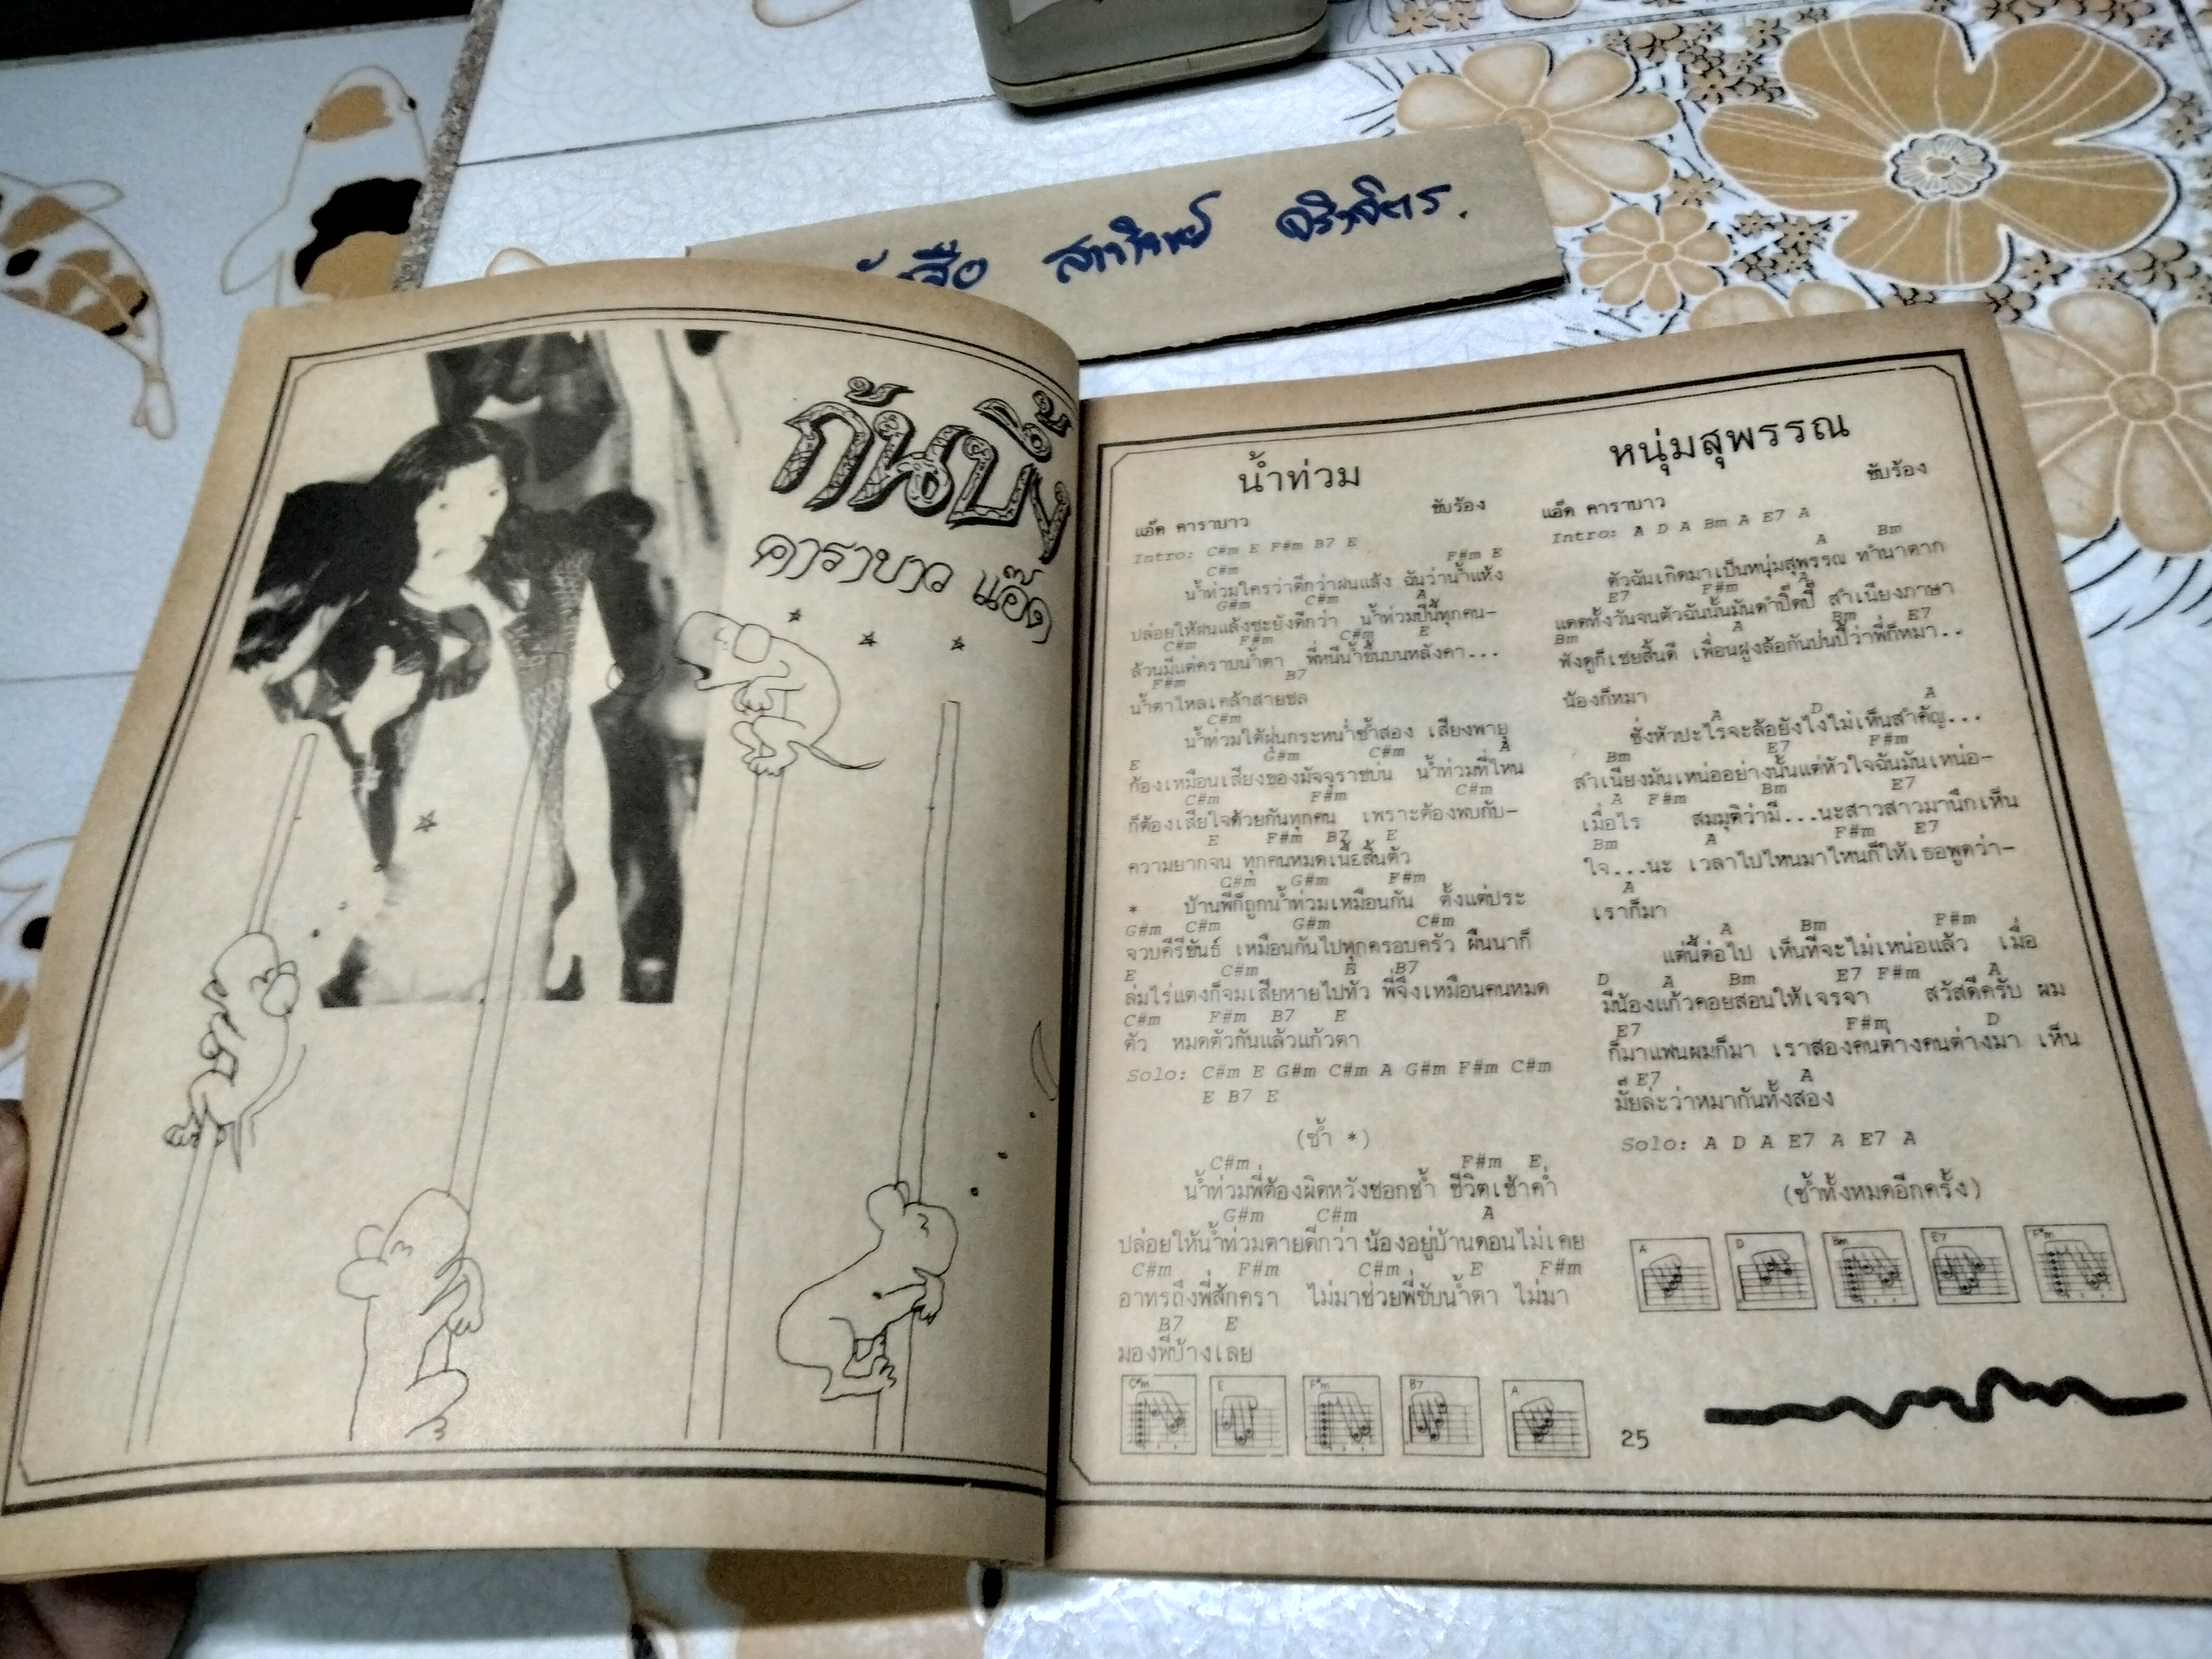 สือ
กัญชา
คาราบาว แอ๊ด
น้ำท่วม
แอ๊ด คาราบาว ขับร้อง
Intro: C#m E F#m B7 E
C#m F#m E
น้ำท่วมใครว่าดีกว่าฝนแล้ง ฉันว่าน้ำแห้ง
G#m C#m A
ปล่อยให้ฝนแล้งซะยังดีกว่า น้ำท่วมปีนี้ทุกคน-
C#m F#m C#m E
ล้วนมีแต่คราบน้ำตา พี่หนีน้ำขึ้นบนหลังคา...
F#m B7
น้ำตาไหลเคล้าสายชล
C#m
น้ำท่วมใต้ฝุ่นกระหน่ำซ้ำสอง เสียงพายุ
E G#m C#m A
ก้องเหมือนเสียงของมัจจุราชบ่น น้ำท่วมที่ไหน
C#m F#m C#m
ก็ต้องเสียใจด้วยกันทุกคน เพราะต้องพบกับ-
E F#m B7 E
ความยากจน ทุกคนหมดเนื้อสิ้นตัว
C#m G#m F#m
* บ้านพี่ก็ถูกน้ำท่วมเหมือนกัน ตั้งแต่ประ
G#m C#m G#m C#m
จวบคีรีขันธ์ เหมือนกันไปทุกครอบครัว ผืนนาก็
E C#m E B7
ล่มไร่แตงก็จมเสียหายไปทั่ว พี่จึงเหมือนคนหมด
C#m F#m B7 E
ตัว หมดตัวกันแล้วแก้วตา
Solo: C#m E G#m C#m A G#m F#m C#m
E B7 E
(ซ้ำ *)
C#m F#m E
น้ำท่วมพี่ต้องผิดหวังชอกช้ำ ชีวิตเช้าค่ำ
G#m C#m A
ปล่อยให้น้ำท่วมตายดีกว่า น้องอยู่บ้านดอนไม่เคย
C#m F#m C#m E F#m
อาทรถึงพี่สักครา ไม่มาช่วยพี่ซับน้ำตา ไม่มา
B7 E
มองพี่บ้างเลย
C#m E F#m B7 A
25
หนุ่มสุพรรณ
แอ๊ด คาราบาว ขับร้อง
Intro: A D A Bm A E7 A
A Bm
ตัวฉันเกิดมาเป็นหนุ่มสุพรรณ ทำนาตาก
E7 F#m A
แดดทั้งวันจนตัวฉันนั้นมันดำปิ๊ดปี๋ สำเนียงภาษา
Bm A Bm E7
ฟังดูก็เชยสิ้นดี เพื่อนฝูงล้อกันปนปี้ว่าพี่ก็หมา..
น้องก็หมา
A D A
ชั่งหัวปะไรจะล้อยังไงไม่เห็นสำคัญ...
Bm E7 F#m
สำเนียงมันเหน่ออย่างนั้นแต่หัวใจฉันมันเหน่อ-
A F#m Bm E7
เมื่อไร สมมุติว่ามี...นะสาวสาวมานึกเห็น
Bm A F#m E7
ใจ...นะ เวลาไปไหนมาไหนก็ให้เธอพูดว่า-
A
เราก็มา
A Bm F#m
แต่นี้ต่อไป เห็นทีจะไม่เหน่อแล้ว เมื่อ
D A Bm E7 F#m A
มีน้องแก้วคอยสอนให้เจรจา สวัสดีครับ ผม
E7 F#m D
ก็มาแฟนผมก็มา เราสองคนต่างคนต่างมา เห็น
E7 A
มั๊ยล่ะว่าหมากันทั้งสอง
Solo: A D A E7 A E7 A
(ซ้ำทั้งหมดอีกครั้ง)
A D Bm E7 F#m